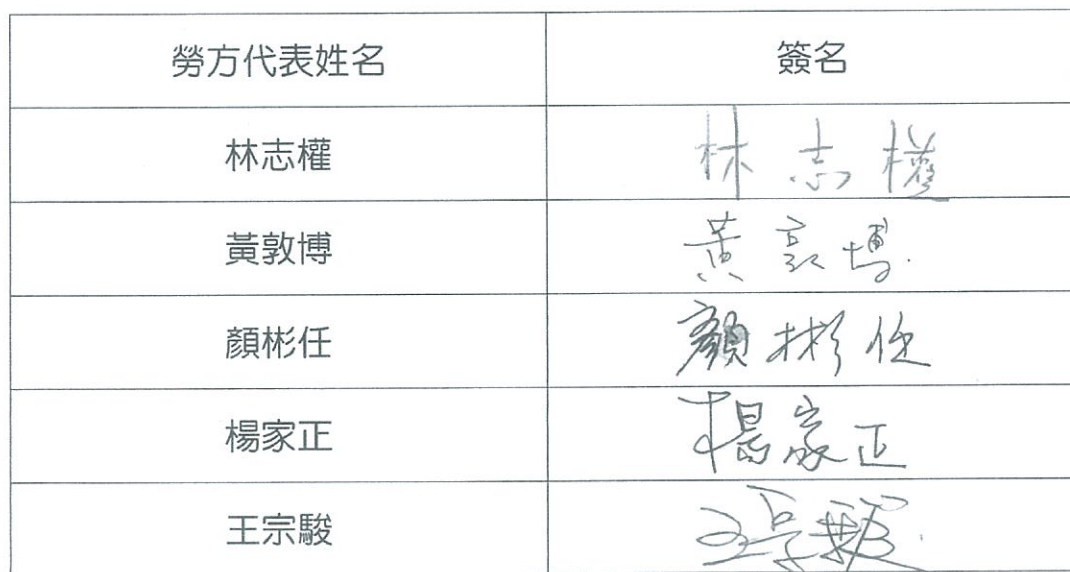 勞方代表姓名 簽名
林志權 林志權
黃敦博 黃敦博
顏彬任 顏彬任
楊家正 楊家正
王宗駿